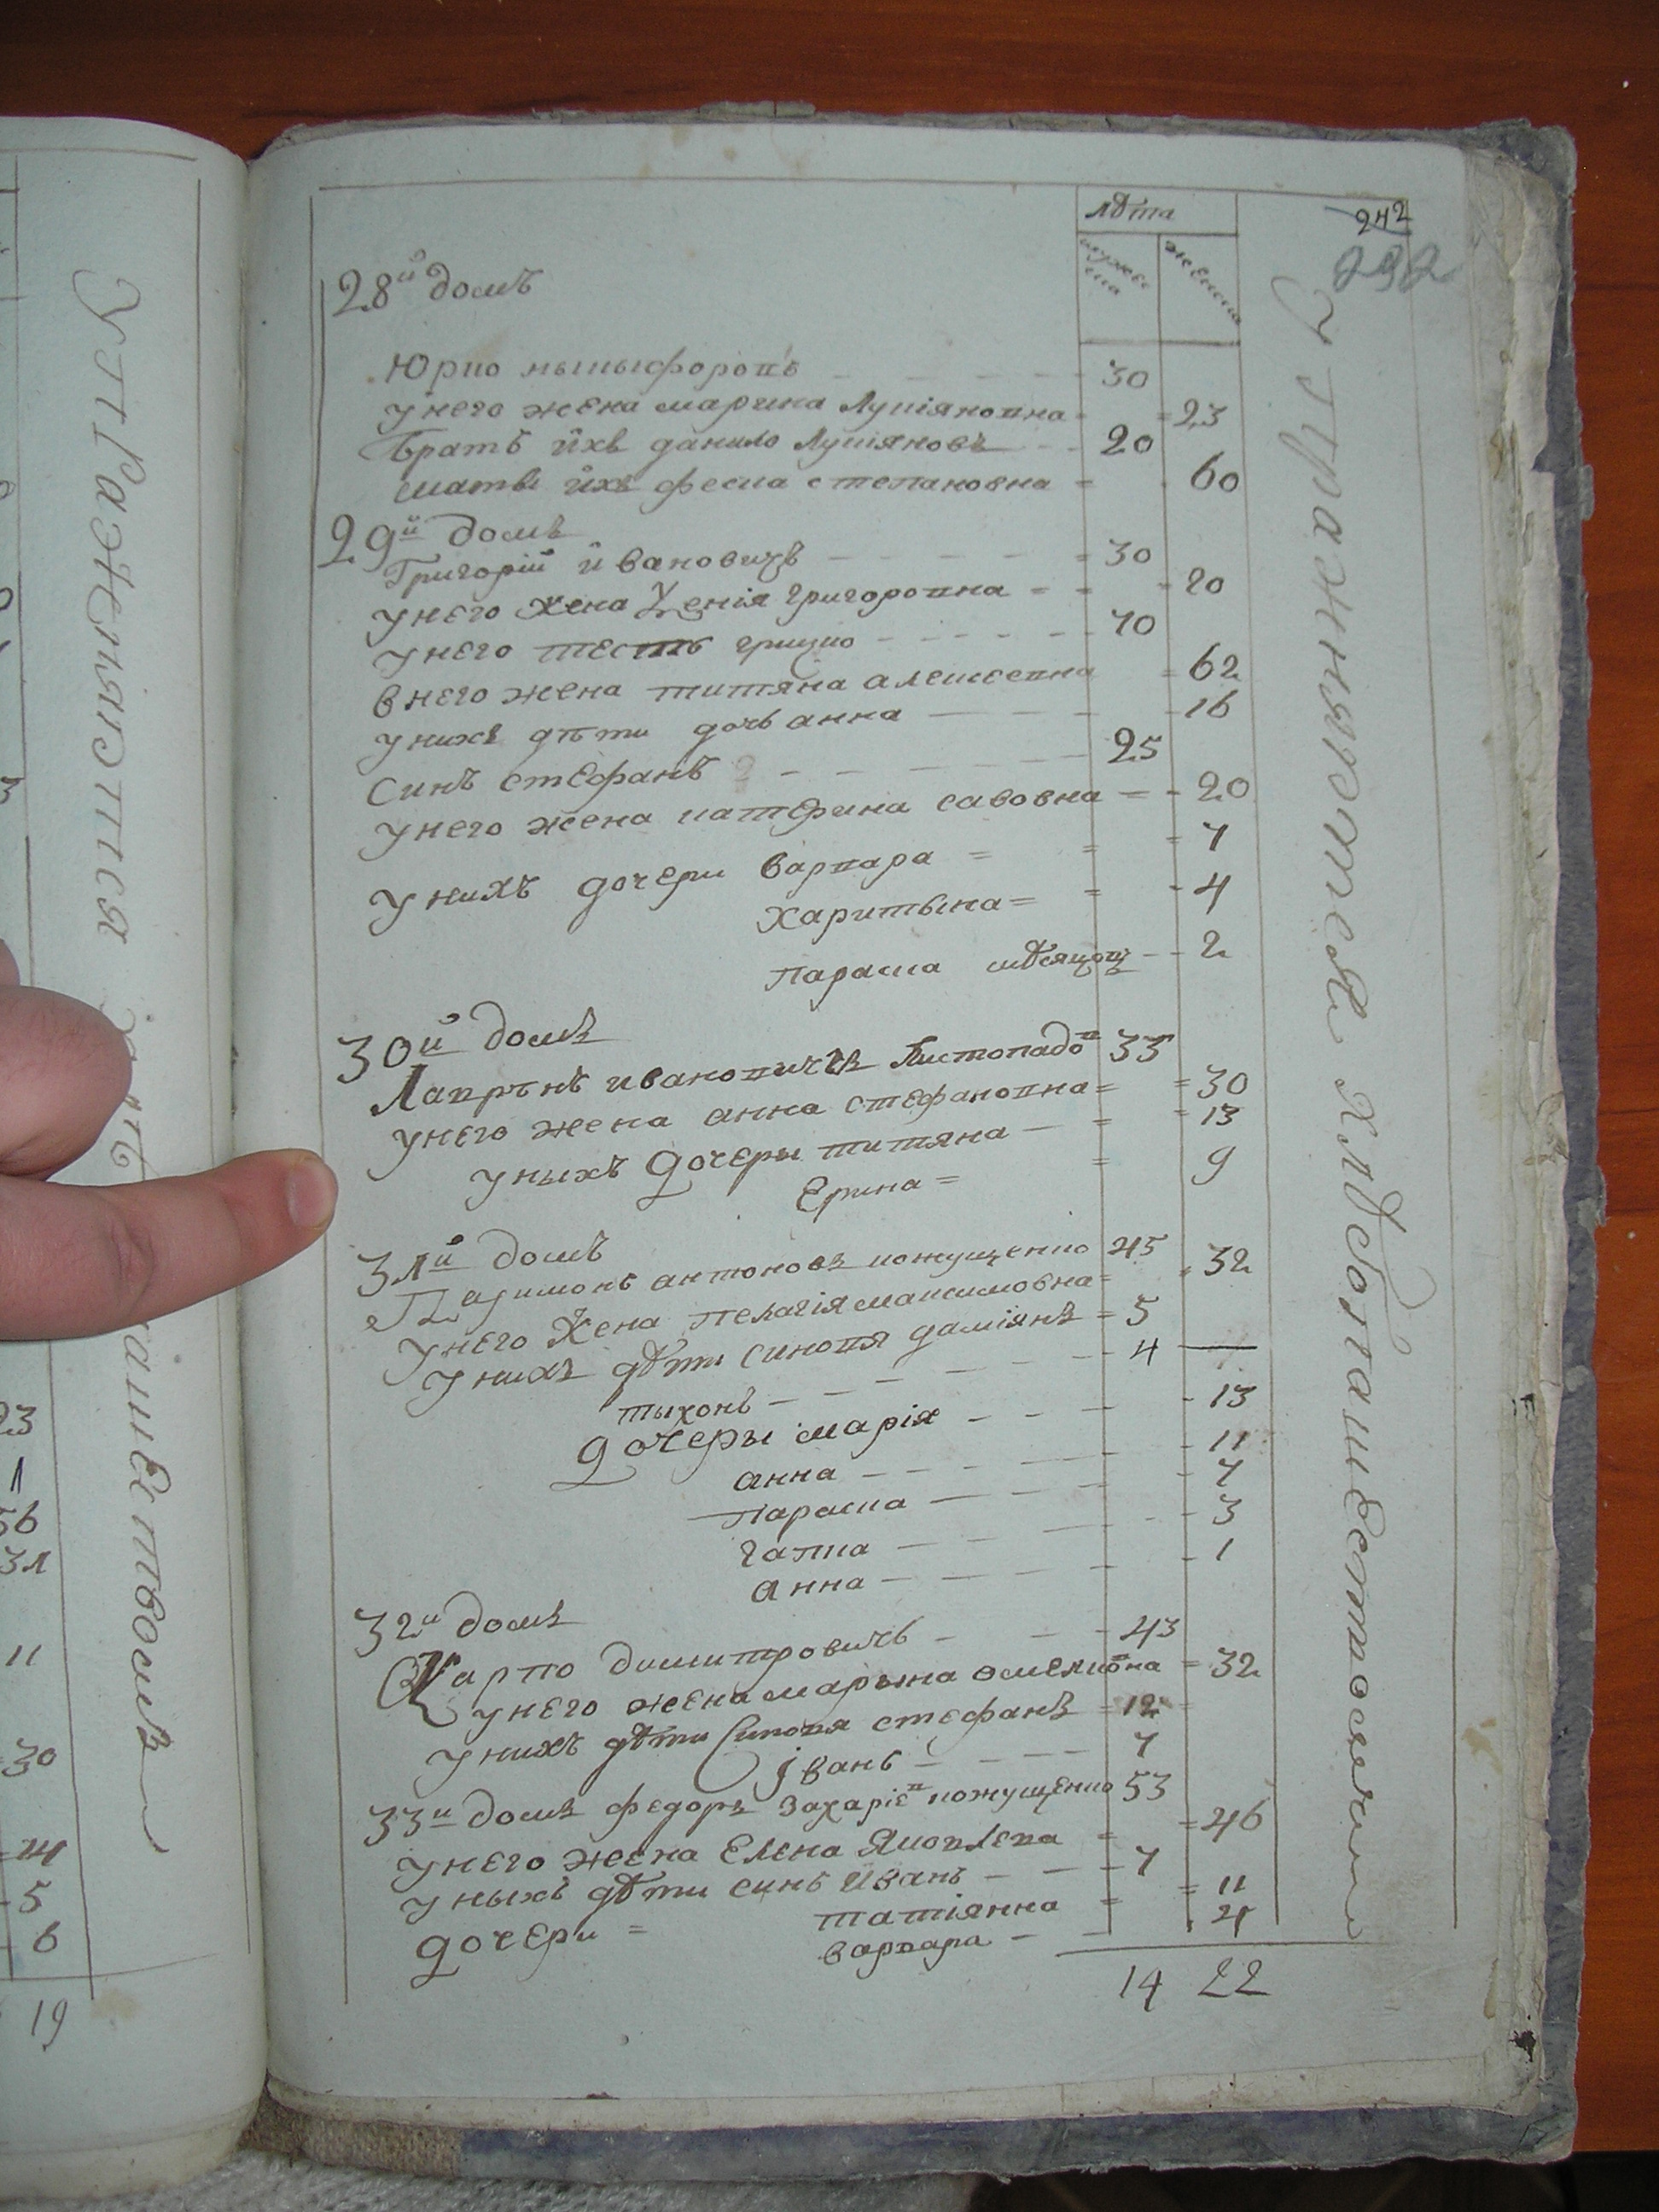 242
292
лѣта
мужеска
женска
28й домъ
Юрко ныкыфоровъ 30
у него жена марина Лукіяновна 23
братъ ихъ данило Лукіяновъ 20
мать ихъ феска степановна 60
29й домъ
Григорій ивановичъ 30
у него жена Ксенія григоровна 20
у него тесть грицко 70
в него жена титяна алексеевна 62
у нихъ дѣти дочь анна 16
Синъ стефанъ 25
у него жена катерина савовна 20
у нихъ дочери варвара 7
харитына 4
параска мѣсяцовъ 2
30й домъ
Лавринъ ивановичъ Листопадовъ 33
у него жена анна стефановна 30
у ныхъ дочеры титяна 13
Ерина 9
31й домъ
Паримонъ антоновъ кожущенко 45
у него жена пелагія максимовна 32
у нихъ дѣти синовя даміянъ 5
тыхонъ 4
дочеры марія 13
анна 11
параска 7
гапка 3
анна 1
32й домъ
Карпо димитровичъ 43
у него жена марына омелковна 32
у нихъ дѣти Синовя стефанъ 12
іванъ 7
33й домъ федоръ захаріевъ кожущенко 53
у него жена Елена Яковлева 46
у ныхъ дѣти синъ иванъ 7
дочери татіянна 11
варвара 4
14 22
упражняются хлѣбопашествомъ